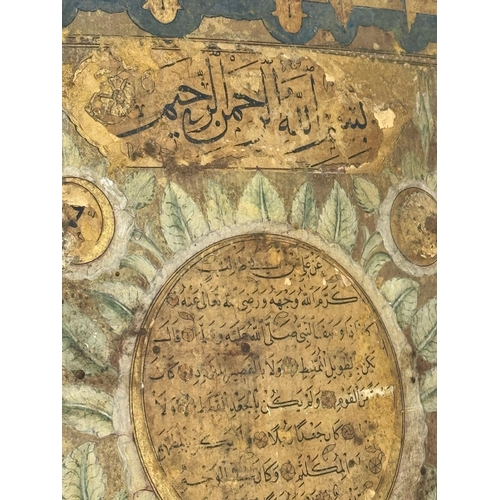 بسم الله الرحمن الرحيم
عن علي بن ابي طالب
كرم الله وجهه ورضي الله تعالى عنه
كان اذا وصف النبي صلى الله عليه وسلم قال
لم يكن بالطويل الممغط ولا بالقصير المتردد كان
من القوم ولم يكن بالجعد القطط ولا
كان جعدا رجلا ولم يكن
المكلثم وكان الوجه